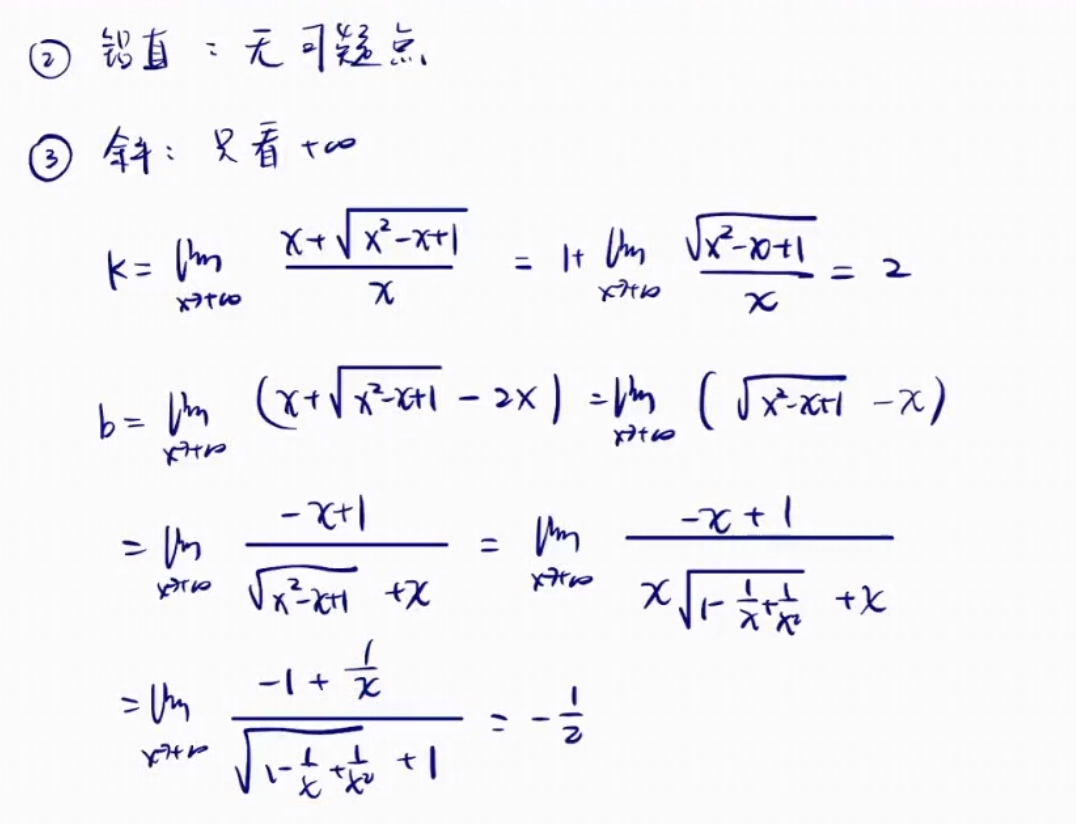 ② 铅直：无可疑点
③ 斜：只看 +∞
k = lim_{x→+∞} \frac{x+\sqrt{x²-x+1}}{x} = 1+ lim_{x→+∞} \frac{\sqrt{x²-x+1}}{x} = 2
b = lim_{x→+∞} (x+\sqrt{x²-x+1} - 2x) = lim_{x→+∞} (\sqrt{x²-x+1} - x)
= lim_{x→+∞} \frac{-x+1}{\sqrt{x²-x+1} +x} = lim_{x→+∞} \frac{-x+1}{x\sqrt{1-\frac{1}{x}+\frac{1}{x²}} +x}
= lim_{x→+∞} \frac{-1+\frac{1}{x}}{\sqrt{1-\frac{1}{x}+\frac{1}{x²}} +1} = -\frac{1}{2}